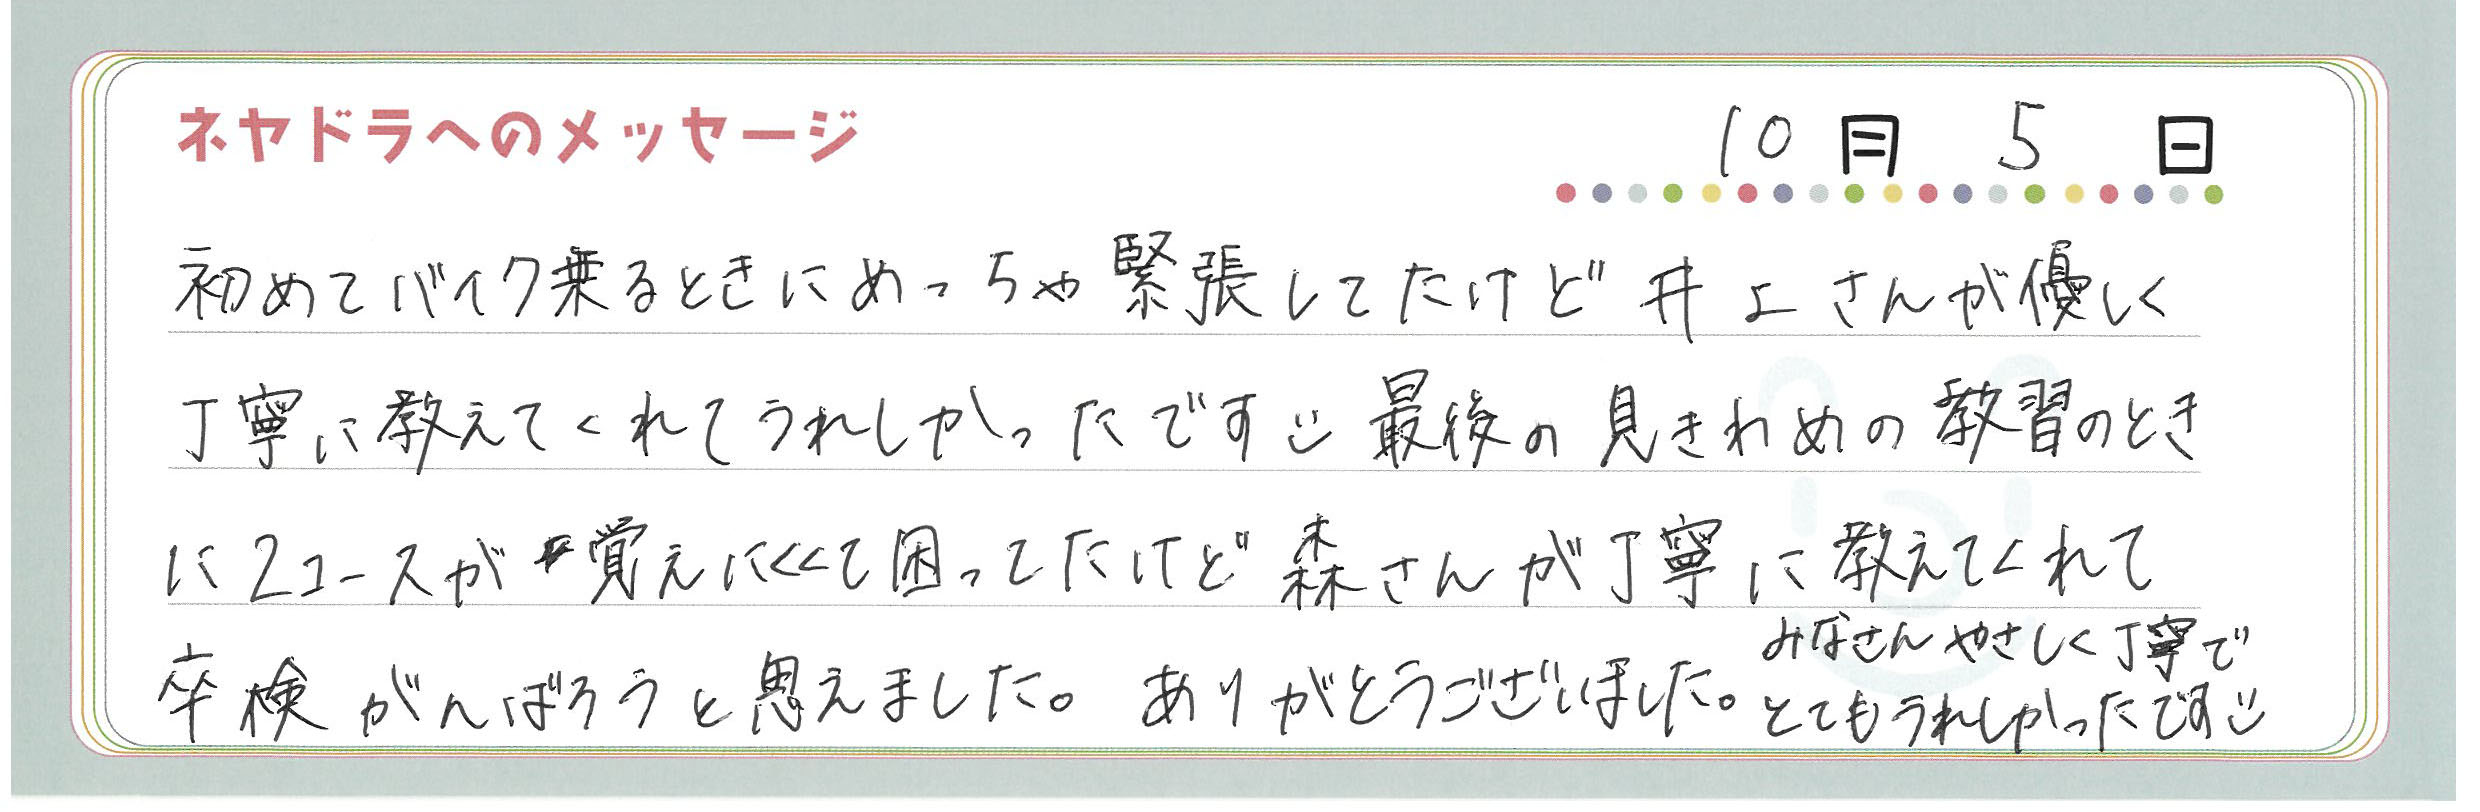 ネヤドラへのメッセージ
10月 5日
初めてバイク乗るときにめっちゃ緊張してたけど井上さんが優しく
丁寧に教えてくれてうれしかったです 最後の見きわめの教習のとき
に2コースが覚えにくくて困ってたけど森さんが丁寧に教えてくれて
卒検がんばろうと思えました。ありがとうございました。
みなさんやさしく丁寧で
とてもうれしかったです